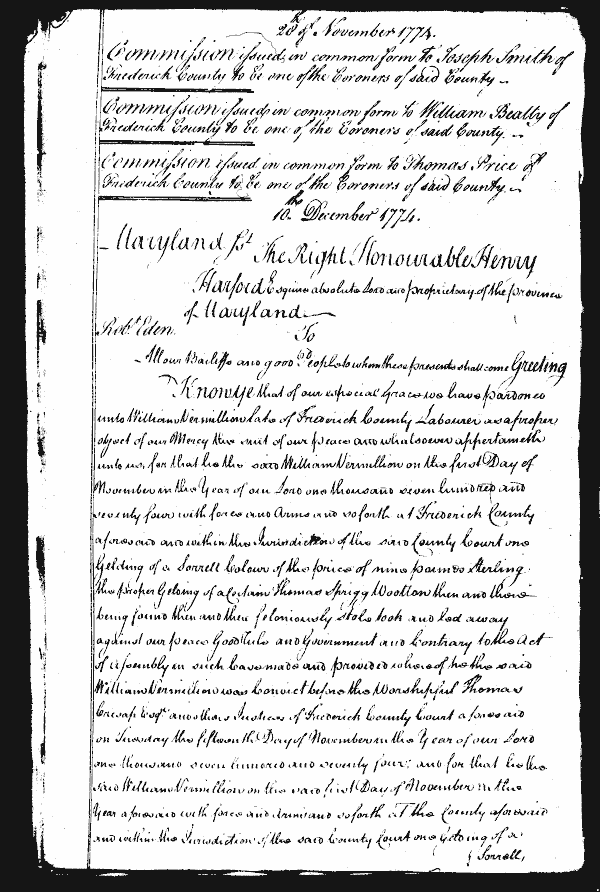 28th of November 1774.
Commission issued in common form to Joseph Smith of
Frederick County to be one of the Coroners of said County
Commission issued in common form to William Beatty of
Frederick County to be one of the Coroners of said County
Commission issued in common form to Thomas Price of
Frederick County to be one of the Coroners of said County
10th December 1774.
Maryland sst The Right Honourable Henry
Harford Esquire absolute Lord and proprietary of the province
of Maryland
Robt Eden. To
All our Bailiffs and good People to whom these presents shall come Greeting
Know ye that of our especial Grace we have pardoned
unto William Vermillion late of Frederick County Labourer as a proper
object of our Mercy the suit of our peace and whatsoever appertaineth
unto us, for that he the said William Vermillion on the first Day of
November in the Year of our Lord one thousand seven hundred and
seventy four with force and Arms and so forth at Frederick County
aforesaid and within the Jurisdiction of the said County Court one
Gelding of a Sorrell Colour of the price of nine pounds Sterling
the proper Gelding of a certain Thomas Sprigg Wootton then and there
being found then and there feloniously stole took and led away
against our peace Good Rule and Government and Contrary to the Act
of Assembly in such Case made and provided whereof he the said
William Vermillion was Convict before the Worshipful Thomas
Cresap Esqr. and others Justices of Frederick County Court aforesaid
on Tuesday the fifteenth Day of November in the Year of our Lord
one thousand seven hundred and seventy four; and for that he the
said William Vermillion on the said first Day of November in the
Year aforesaid with force and Arms and so forth at the County aforesaid
and within the Jurisdiction of the said County Court one Gelding of a
Sorrell,